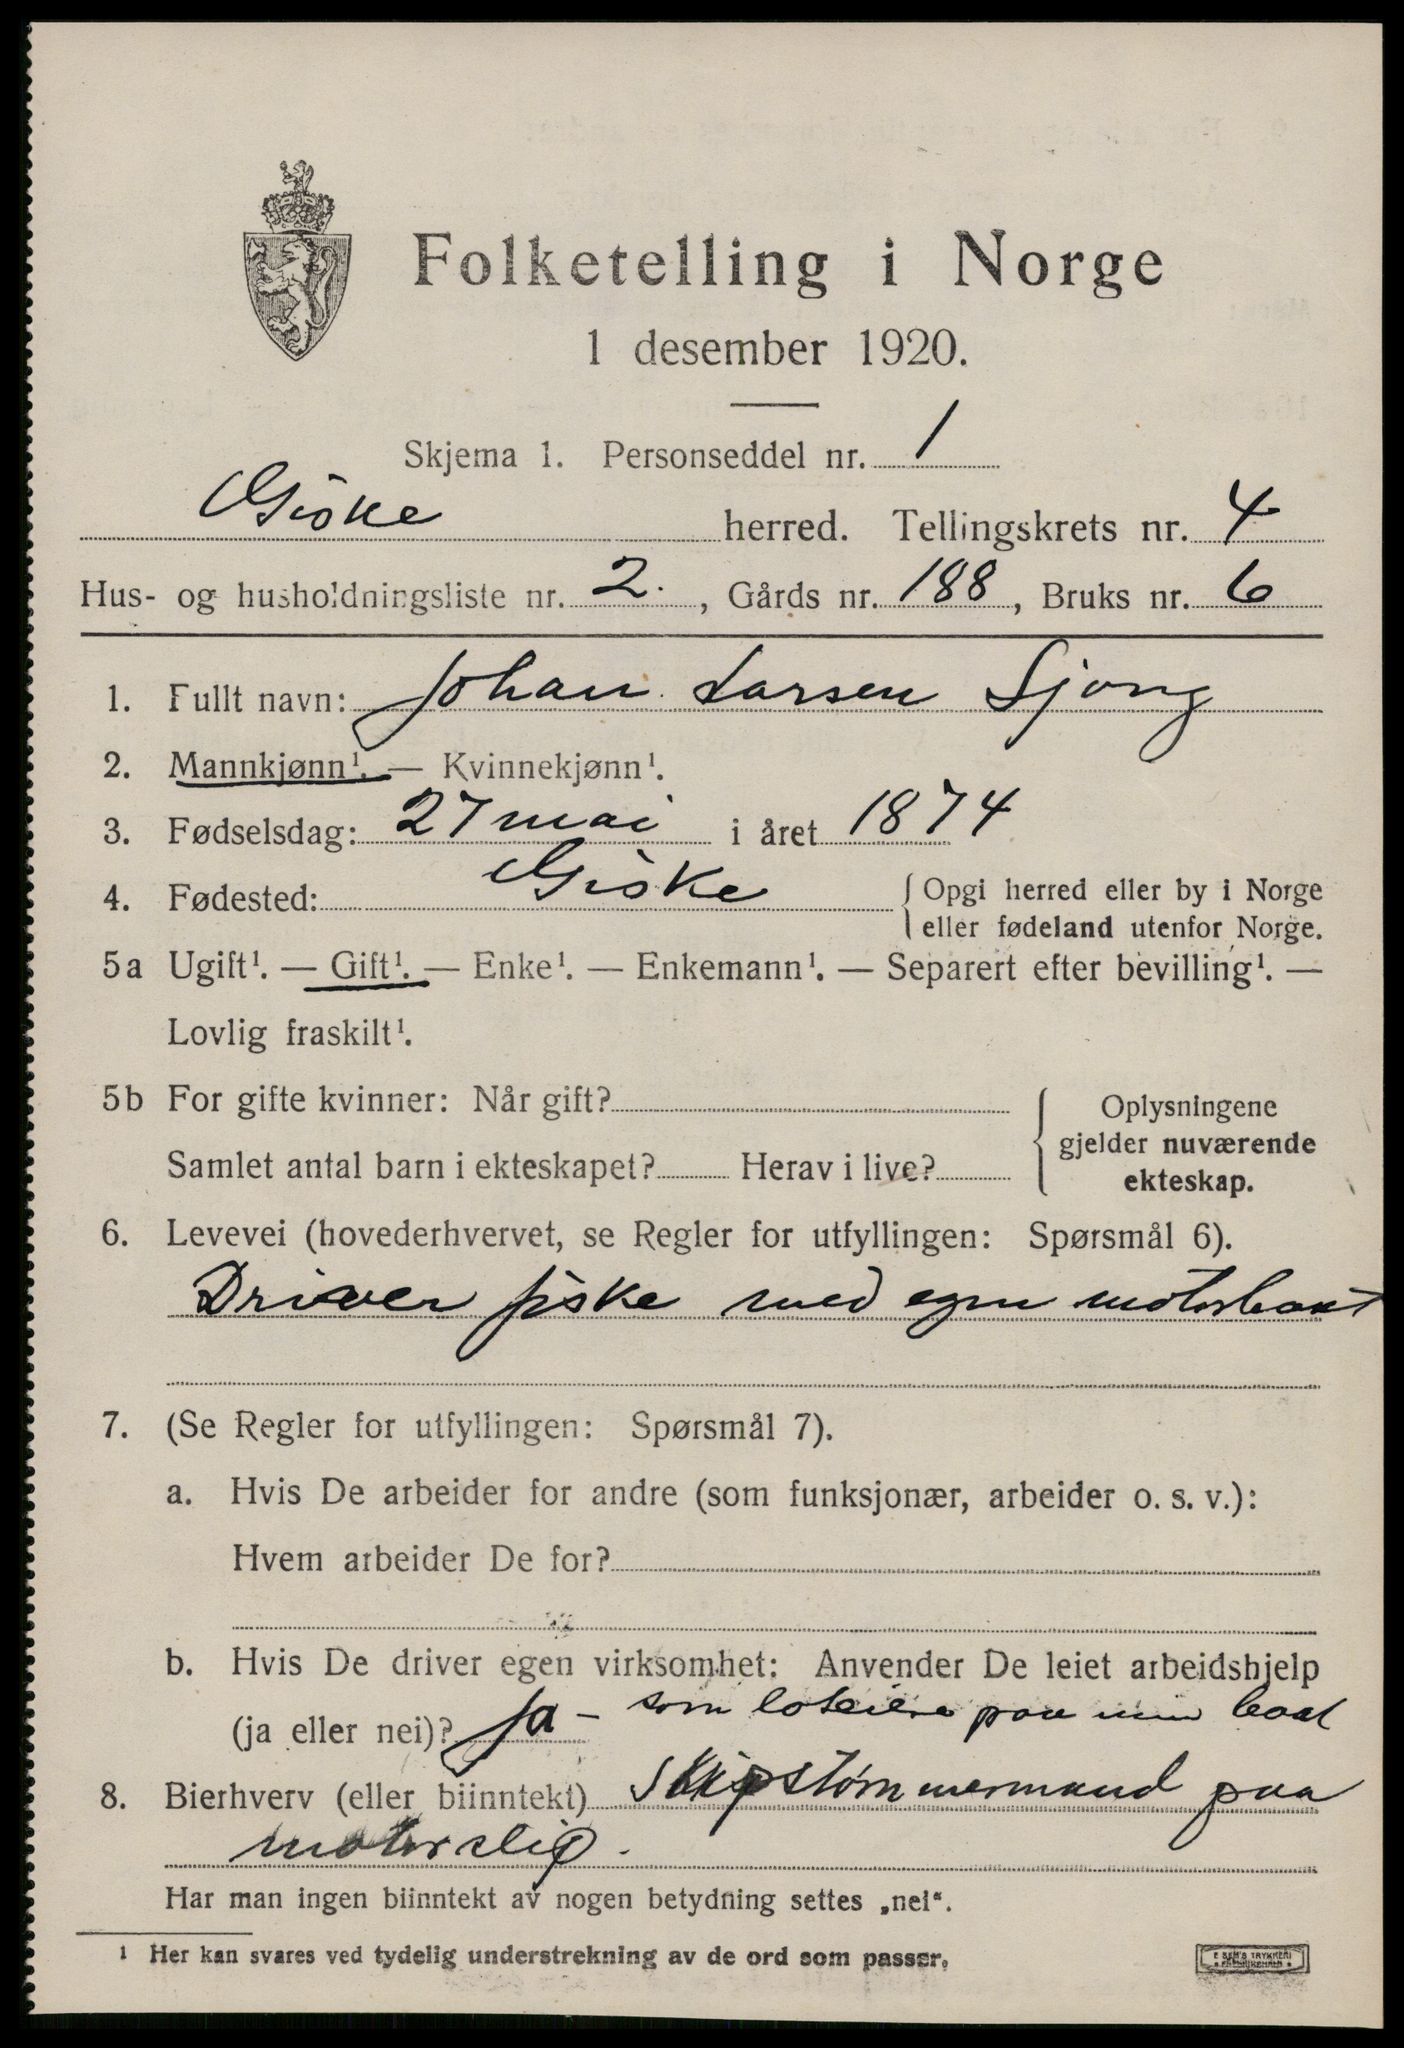 Folketelling i Norge
1 desember 1920.
Skjema 1. Personseddel nr. 1
Giske herred. Tellingskrets nr. 4
Hus- og husholdningsliste nr. 2. , Gårds nr. 188, Bruks nr. 6
1. Fullt navn: Johan Larsen Sjong
2. Mannkjønn¹. — Kvinnekjønn¹.
3. Fødselsdag: 27 mai i året 1874
4. Fødested: Giske { Opgi herred eller by i Norge
eller fødeland utenfor Norge.
5a Ugift¹. — Gift¹. — Enke¹. — Enkemann¹. — Separert efter bevilling¹. —
Lovlig fraskilt¹.
5b For gifte kvinner: Når gift? { Oplysningene
gjelder nuværende
Samlet antal barn i ekteskapet? Herav i live?
ekteskap.
6. Levevei (hovederhvervet, se Regler for utfyllingen: Spørsmål 6).
Driver fiske med egen motorbaat
7. (Se Regler for utfyllingen: Spørsmål 7).
a. Hvis De arbeider for andre (som funksjonær, arbeider o. s. v.):
Hvem arbeider De for?
b. Hvis De driver egen virksomhet: Anvender De leiet arbeidshjelp
(ja eller nei)? Ja - som paa min baat
8. Bierhverv (eller biinntekt) Skipstømmermand paa
motorslip.
Har man ingen biinntekt av nogen betydning settes „nei“.
¹ Her kan svares ved tydelig understrekning av de ord som passer.